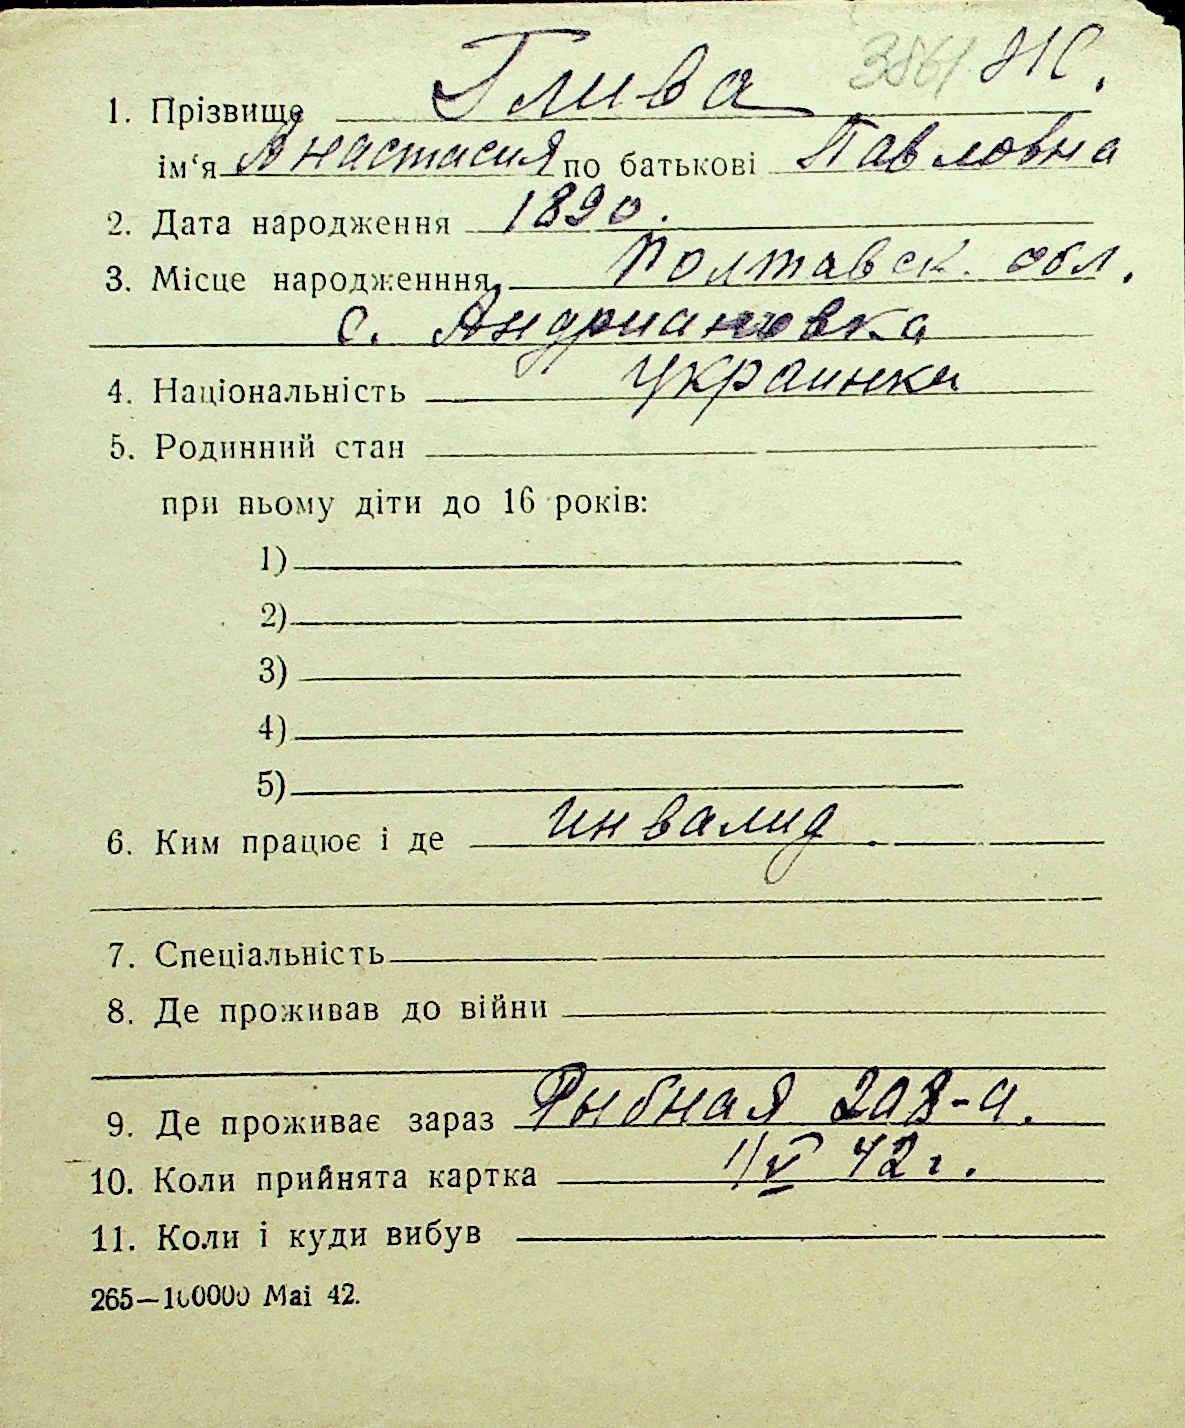 3861 Ж.
1. Прізвище Глива
ім'я Анастасия по батькові Павловна
2. Дата народження 1890.
3. Місце народженння, Полтавск. обл.
с. Андриановка
4. Національність украинка
5. Родинний стан
при ньому діти до 16 років:
1)
2)
3)
4)
5)
6. Ким працює і де инвалид.
7. Спеціальність
8. Де проживав до війни
9. Де проживає зараз Рыбная 208-а.
10. Коли прийнята картка 1/V 42 г.
11. Коли і куди вибув
265—100000 Mai 42.